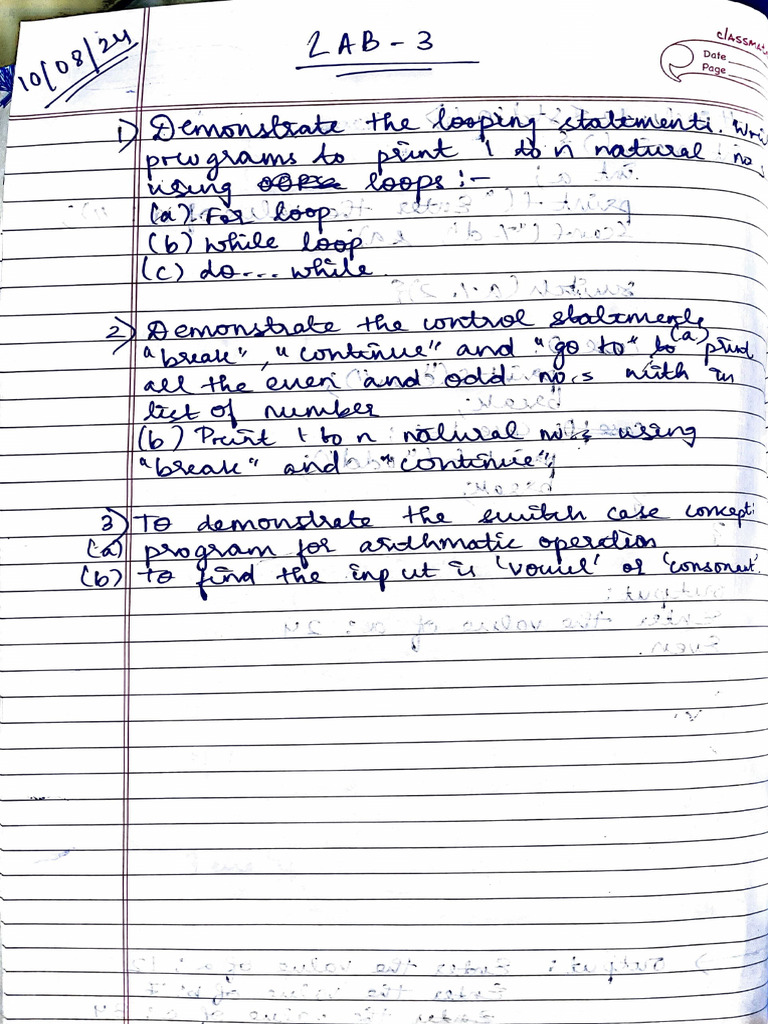 10/08/24
LAB - 3
classmate
Date
Page
1) Demonstrate the looping statement.
programs to print 1 to n natural no
using loops :-
(a) For loop
(b) while loop
(c) do... while
2) Demonstrate the control statements
"break", "continue" and "go to" to (a) print
all the even and odd no.s with in
list of number
(b) Print 1 to n natural no.s using
"break" and "continue"
3) To demonstrate the switch case concept
(a) program for arithmatic operation
(b) To find the input is 'vowel' or 'consonent'